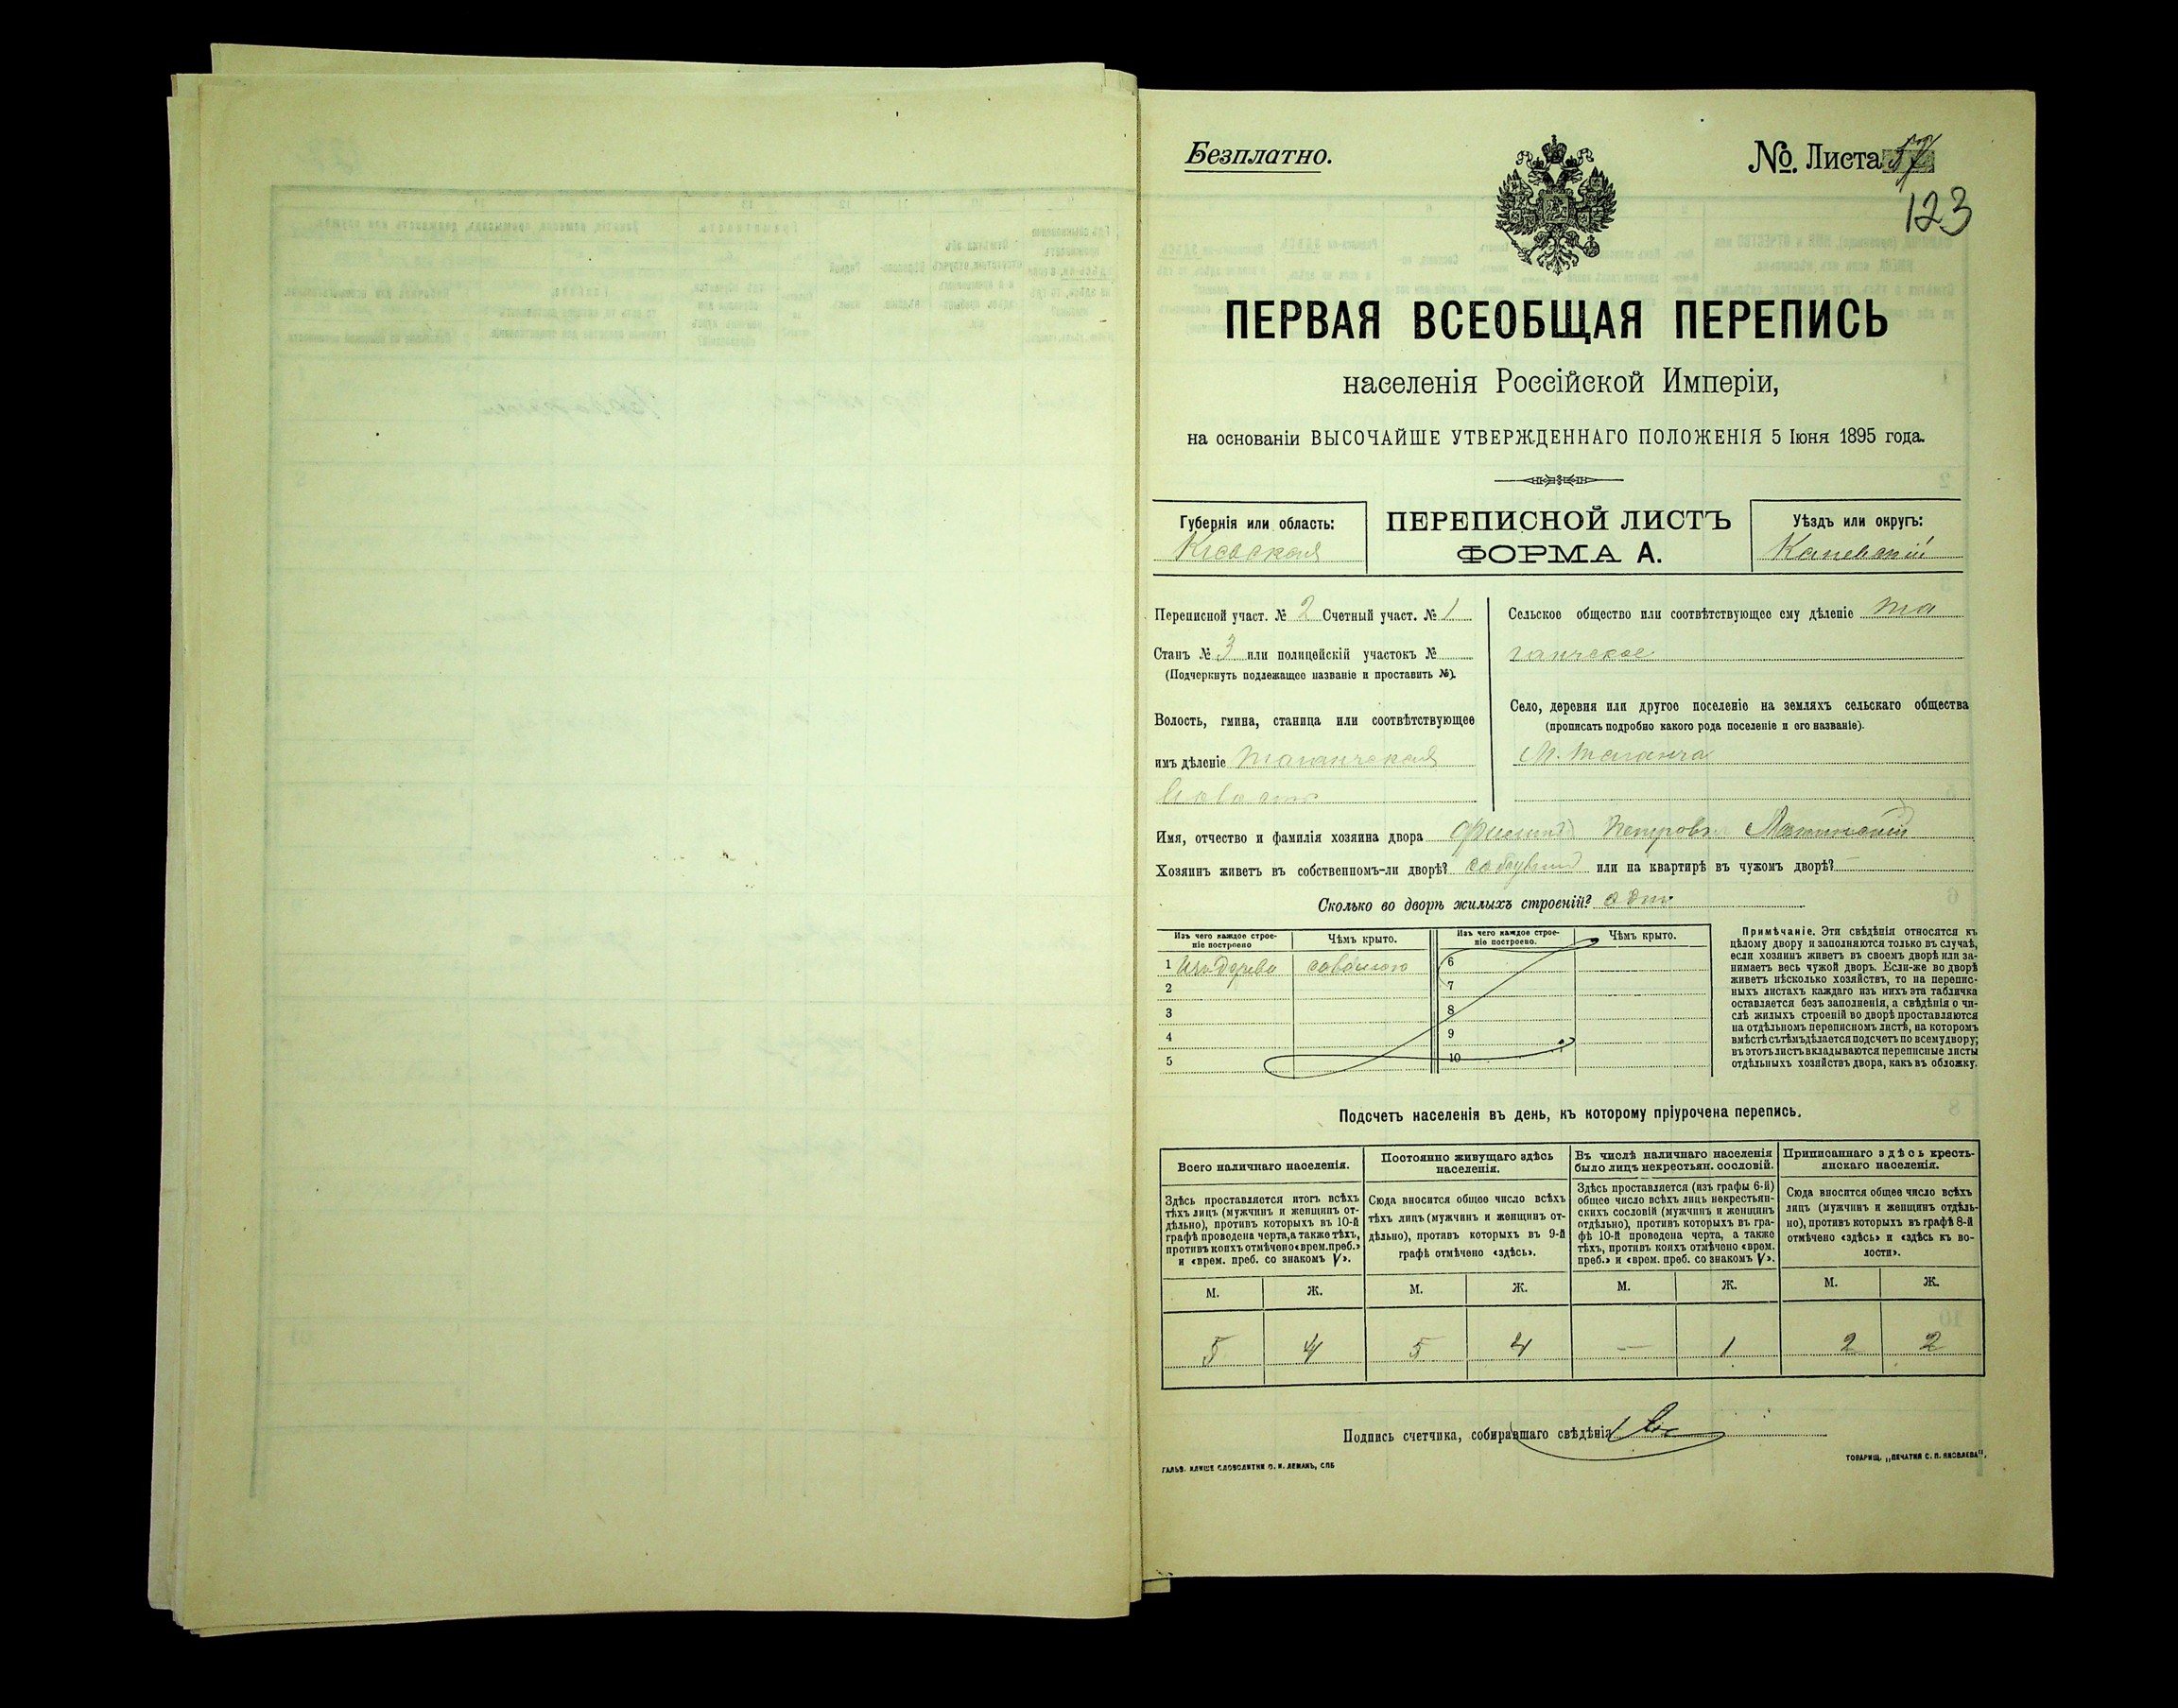 Безплатно.
№. Листа 57
123
ПЕРВАЯ ВСЕОБЩАЯ ПЕРЕПИСЬ
населенія Россійской Имперіи,
на основаніи ВЫСОЧАЙШЕ УТВЕРЖДЕННАГО ПОЛОЖЕНІЯ 5 Іюня 1895 года.
Губернія или область:
Кіевская
ПЕРЕПИСНОЙ ЛИСТЪ
ФОРМА А.
Уѣздъ или округъ:
Каневскій
Переписной участ. № 2 Счетный участ. № 1
Станъ № 3 или полицейскій участокъ №
(Подчеркнуть подлежащее названіе и проставить №).
Волость, гмина, станица или соотвѣтствующее
имъ дѣленіе Таганчская
волость
Сельское общество или соотвѣтствующее ему дѣленіе Та
ганчское
Село, деревня или другое поселеніе на земляхъ сельскаго общества
(прописать подробно какого рода поселеніе и его названіе).
М. Таганча
Имя, отчество и фамилія хозяина двора Петровъ
Хозяинъ живетъ въ собственномъ-ли дворѣ? или на квартирѣ въ чужомъ дворѣ? —
Сколько во дворѣ жилыхъ строеній? один
Изъ чего каждое строе-
ніе построено
Чѣмъ крыто.
Изъ чего каждое строе-
ніе построено.
Чѣмъ крыто.
1 Изъ дерева соломою
2
3
4
5
6
7
8
9
10
Примѣчаніе. Эти свѣдѣнія относятся къ
цѣлому двору и заполняются только въ случаѣ,
если хозяинъ живетъ въ своемъ дворѣ или за-
нимаетъ весь чужой дворъ. Если-же во дворѣ
живетъ нѣсколько хозяйствъ, то на перепис-
ныхъ листахъ каждаго изъ нихъ эта табличка
оставляется безъ заполненія, а свѣдѣнія о чи-
слѣ жилыхъ строеній во дворѣ проставляются
на отдѣльномъ переписномъ листѣ, на которомъ
вмѣстѣ съ тѣмъ дѣлается подсчетъ по всему двору;
въ этотъ листъ вкладываются переписные листы
отдѣльныхъ хозяйствъ двора, какъ въ обложку.
Подсчетъ населенія въ день, къ которому пріурочена перепись.
Всего наличнаго населенія.
Постоянно живущаго здѣсь
населенія.
Въ числѣ наличнаго населенія
было лицъ некрестьян. сословій.
Приписаннаго здѣсь кресть-
янскаго населенія.
Здѣсь проставляется итогъ всѣхъ
тѣхъ лицъ (мужчинъ и женщинъ от-
дѣльно), противъ которыхъ въ 10-й
графѣ проведена черта, а также тѣхъ,
противъ коихъ отмѣчено «врем. преб.»
и «врем. преб. со знакомъ V».
Сюда вносится общее число всѣхъ
тѣхъ лицъ (мужчинъ и женщинъ от-
дѣльно), противъ которыхъ въ 9-й
графѣ отмѣчено «здѣсь».
Здѣсь проставляется (изъ графы 6-й)
общее число всѣхъ лицъ некрестьян-
скихъ сословій (мужчинъ и женщинъ
отдѣльно), противъ которыхъ въ гра-
фѣ 10-й проведена черта, а также
тѣхъ, противъ коихъ отмѣчено «врем.
преб.» и «врем. преб. со знакомъ V».
Сюда вносится общее число всѣхъ
лицъ (мужчинъ и женщинъ отдѣль-
но), противъ которыхъ въ графѣ 8-й
отмѣчено «здѣсь» и «здѣсь къ во-
лости».
М. Ж. М. Ж. М. Ж. М. Ж.
5 4 5 4 — 1 2 2
Подпись счетчика, собиравшаго свѣдѣнія
ГАЛЬВ. КЛИШЕ СЛОВОЛИТНИ О. И. ЛЕМАНЪ, СПБ
ТОВАРИЩ. „ПЕЧАТНЯ С. П. ЯКОВЛЕВА".